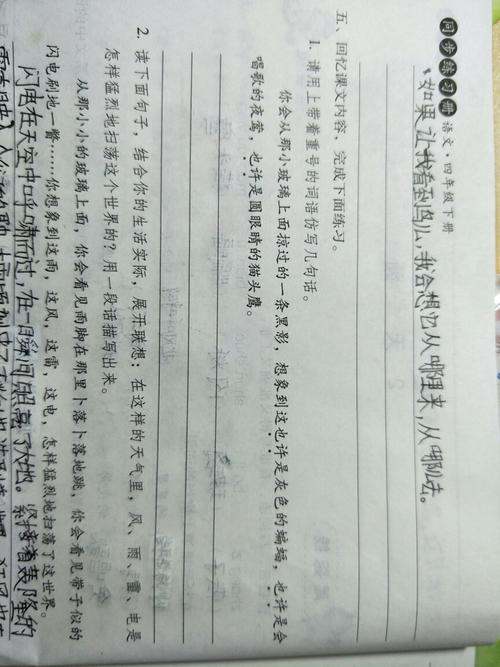 同步练习册 语文·四年级下册
如果让我看到鸟儿,我会想它从哪里来,从哪儿去。
五、回忆课文内容,完成下面练习。
1. 请用上带着重号的词语仿写几句话。
你会从那小玻璃上面掠过的一条黑影,想象到这也许是灰色的蝙蝠,也许是会
唱歌的夜莺,也许是圆眼睛的猫头鹰。
2. 读下面句子,结合你的生活实际,展开联想:在这样的天气里,风、雨、雷、电是
怎样猛烈地扫荡这个世界的?用一段话描写出来。
从那小小的玻璃上面,你会看见雨脚在那里卜落卜落地跳,你会看见带子似的
闪电刷地一瞥……你想象到这雨,这风,这雷,这电,怎样猛烈地扫荡了这世界。
闪电在天空中呼啸而过,在一瞬间照亮了大地。紧接着轰隆的